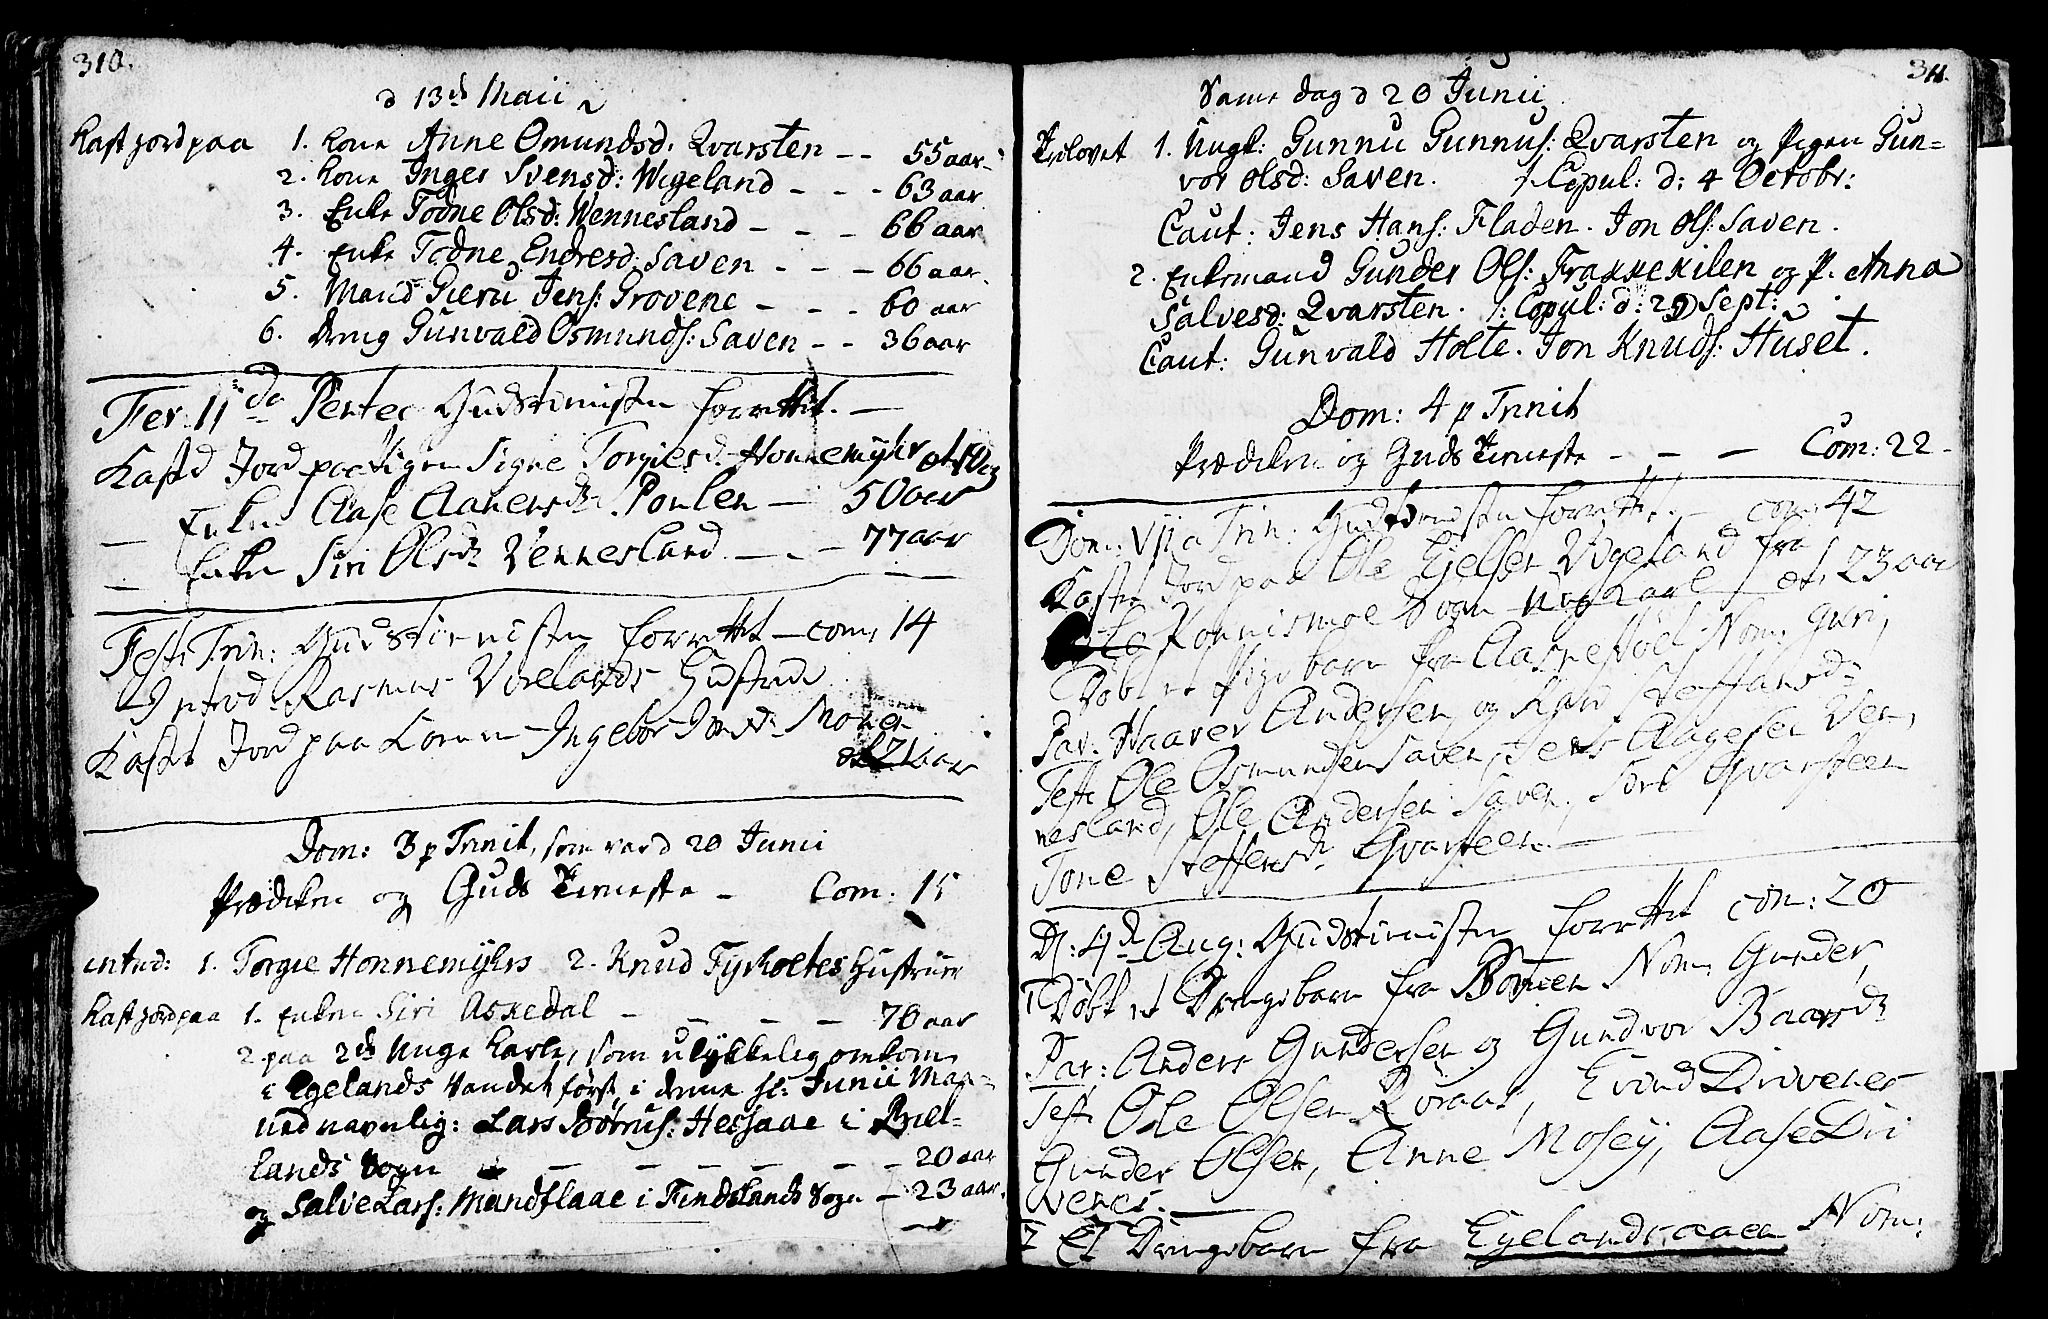 310.
d 13de Maii
Kast jord paa 1. Kone Anne Omundsd. Qvarsten -- 55 aar
2. Kone Inger Svensd: Wigeland - - - 63 aar
3. Enke Todne Olsd: Wennesland - - - 66 aar
4. Enke Todne Endresd: Saven - - - 66 aar
5. Mand Gieru Jens: Grovene - - - 60 aar
6. Dreng Gunvald Osmunds: Saven - - 36 aar
Fer. II da Pentec Gudstienisten forrettet. —
Kastd Jord paa Pigen Signe Torgiesd. Honnemyhr æt 10
— Enken Aase Aanensdr. Ponlen — 50 aar
— Enken Siri Olsdr Vennesland — . — 77 aar
Fest: Trin: Gudstienisten forrettet — com, 14
Introd. Rasmus Vixelands Hustrue
Kastet Jord paa Konen Ingebor Mone-
æt 71 aar
Dom: 3 p Trinit, som var d 20 Junii
Prædiken og Guds tieneste - Com: 15
intrd: 1. Torgie Honnemyhrs 2. Knud Tyrholtes Hustruer
Kast jord paa 1. Enken Siri Askedal - - - - 76 aar
2 paa 2de unge Karle, som ulykkelig omkom
i Egelands Vandet først i denne h: Junii Maa-
ned navnlig: Lars Hessaae i Biel-
lands Sogn - - - - - - 20 aar
og Salve Lars: Mandflaae i Findslands Sogn - 23 aar.
311.
Same dag d 20 Junii
Trolovet 1. Ungk: Gunnu Gunnus: Qvarsten og Pigen Gun-
vor Olsd: Saven. /: Copul: d: 4 Octobr:
Caut: Jens Hans: Fladen. Jon Ols: Saven.
2. Enkemand Gunder Ols: Frakkekilen og P. Anna
Salvesd: Qvarsten. /: Copul: d: 29 Sept:
Caut: Gunvald Holte. Jon Knuds: Huset.
Dom: 4 p Trinit
Prædiken og Guds tieneste - - - Com: 22 -
Dom: VII a Trin: Gudstienesten forrettet. — com: 42
Kastet Jord paa Ole Eyelsen Vigeland fra
Konnismoe Sogn ung Karl - æt, 23 aar
Døbt et Pigebarn fra Nom, Guri,
Par. Haaver Andersen og Siri Steffansdr
Test: Ole Osmundsen Saven, Jens Aagesen Ven-
nesland, Ole Andersen Saven, Siri Qvarsteen
Tone Steffensdr Qvarsteen. —
D: 4de Aug: Gudstienisten forrettet com: 20
1 Døbt et Drengebarn fra Nom, Gunder,
Par: Anders Gundersen og Gundvor Baarsdr
Test: Ole Olsen Röraas, Evind Drivenes
Gunder Olsen, Anne Mosey, Aase Dri
venes. —
2 Et Drengebarn fra Egelandsaaen Nom: